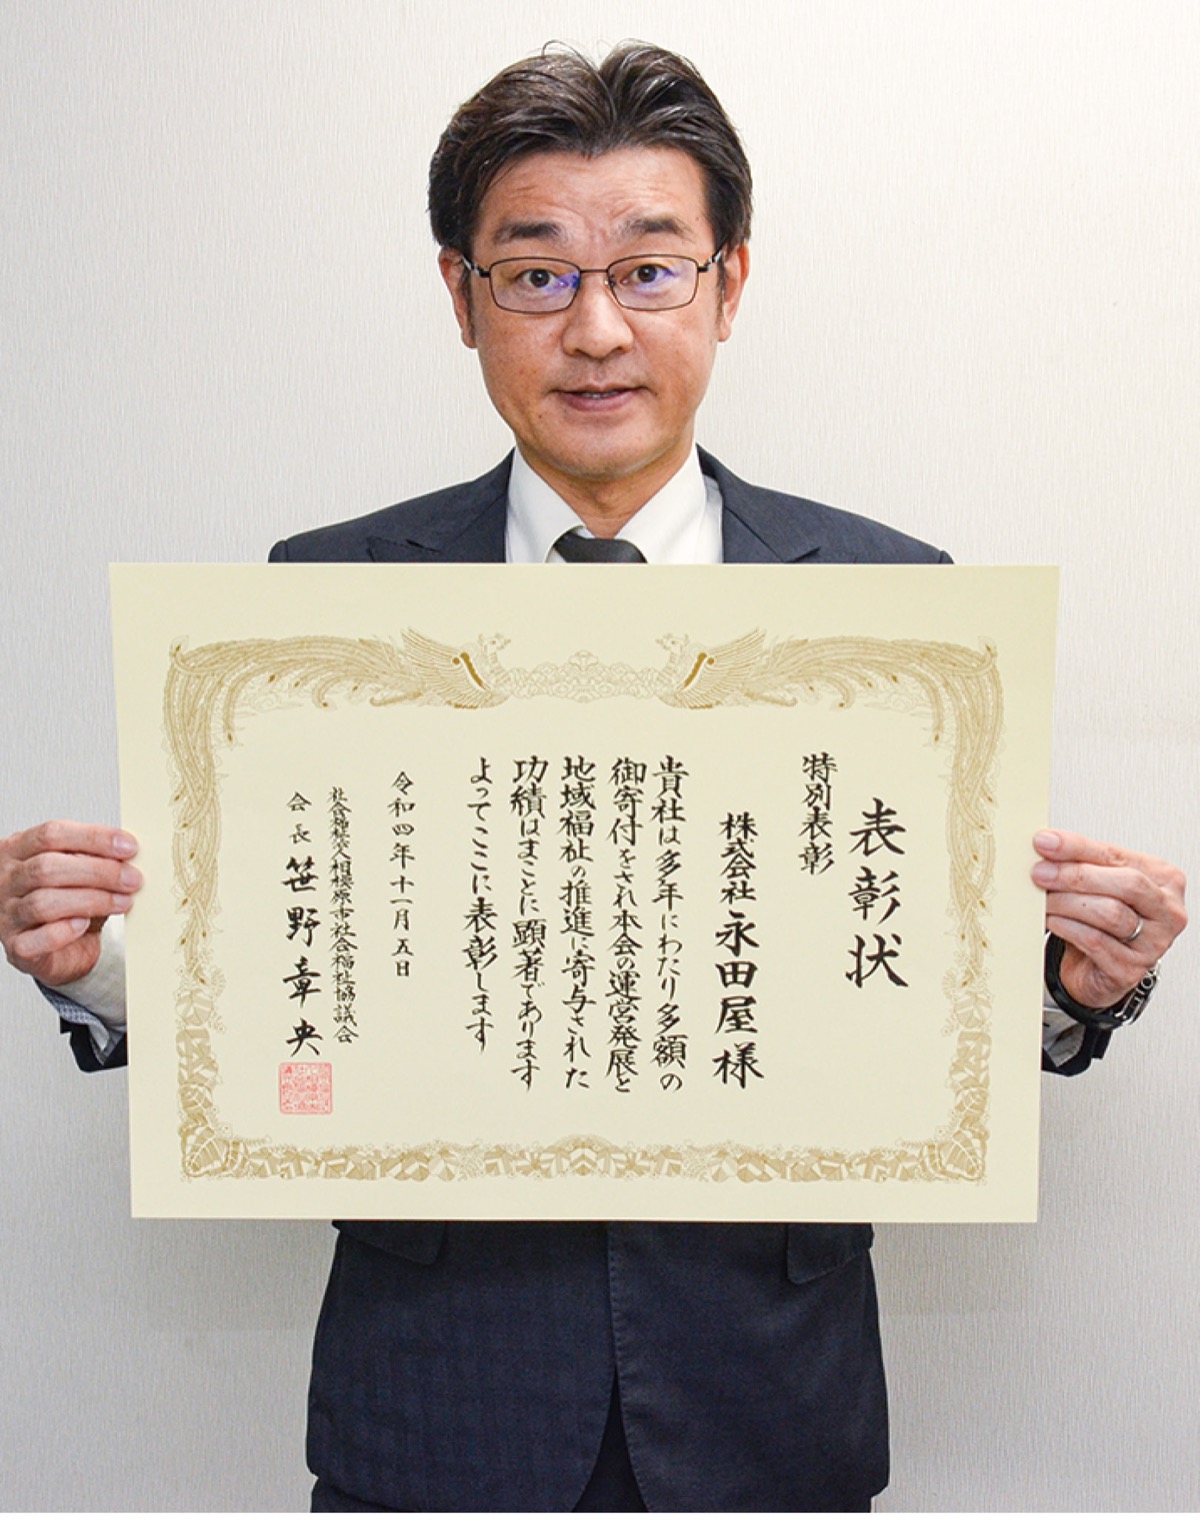 表彰状
特別表彰
株式会社 永田屋 様
貴社は多年にわたり多額の
御寄付をされ本会の運営発展と
地域福祉の推進に寄与された
功績はまことに顕著であります
よってここに表彰します
令和四年十一月五日
社会福祉法人相模原市社会福祉協議会
会長 笹野章央